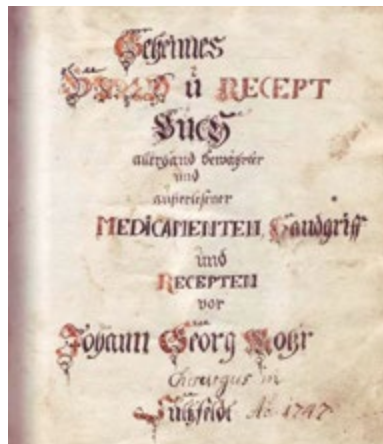 Geheimes
ů RECEPT
Buch
allerhand bewährter
und
außerlesener
MEDICAMENTEN, Handgriff
und
RECEPTEN
vor
Johann Georg Mohr
Chirurgus in
Ao 1747